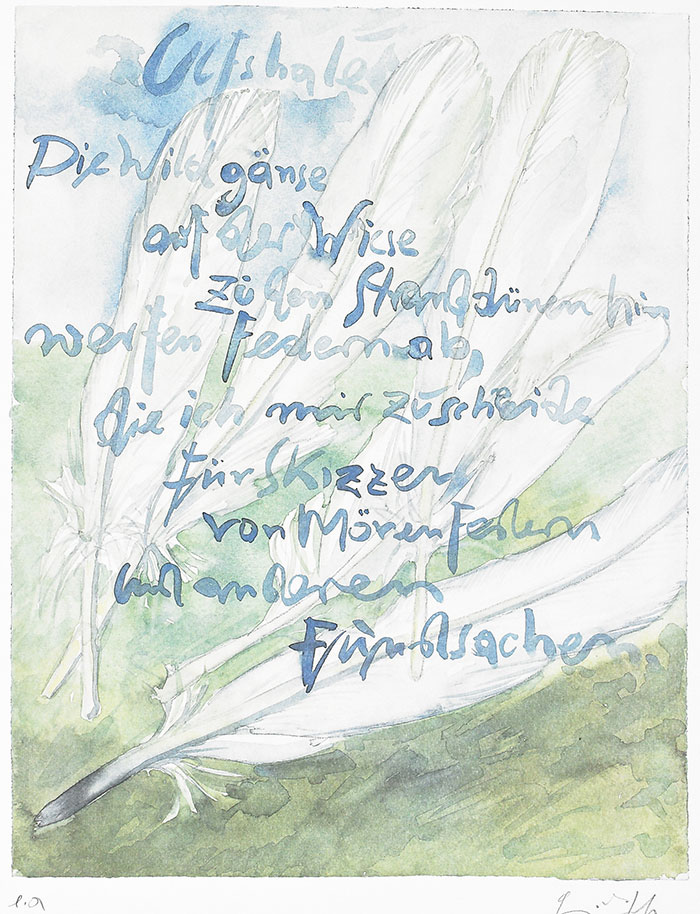 Ulfshale
Die Wildgänse
auf der Wiese
zu den Stranddünen hin
werfen Federn ab,
die ich mir zuschneide
für Skizzen
von Mövenfedern
und anderen
Fundsachen.
e.a